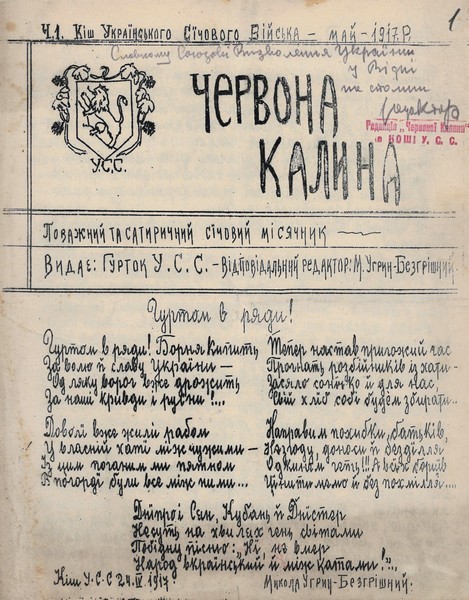 1
Ч.1. Кіш Українського Січового Війська – май – 1917 р.
Славному Союзові Визволення України
у Відні
редактор
Редакція „Червоної Калини"
в КОШІ У. С. С.
У.С.С.
ЧЕРВОНА
КАЛИНА
Поважний та сатиричний січовий місячник
Видає: Гурток У.С.С. – Відповідальний редактор: М. Угрин-Безгрішний.
Гуртом в ряди!
Гуртом в ряди! Борня кипить
За волю й славу України —
Од ляку ворог вже дрожить
За наші кривди і руїни!...
Доволі вже жили рабом
У власній хаті між чужими —
З цим поганим пятном
погорді були все між ними...
Тепер настав пригожий час
Прогнать розбійників із хати —
Засяло сонечко й для нас,
Свій хліб собі будем збирати..
Направим похибки батьків,
Незгоду, доноси й безділля
Одкинем геть!!! А всіх борців
Цінитимемо й без похмілля....
Дніпро і Сян, Кубань й Дністер
Несуть на хвилях ген світами
Побідну пісню: „Ні, не вмер
Народ вкраїнський й між катами!"..
Кіш У.С.С. 24.III. 1917.
Микола Угрин-Безгрішний.